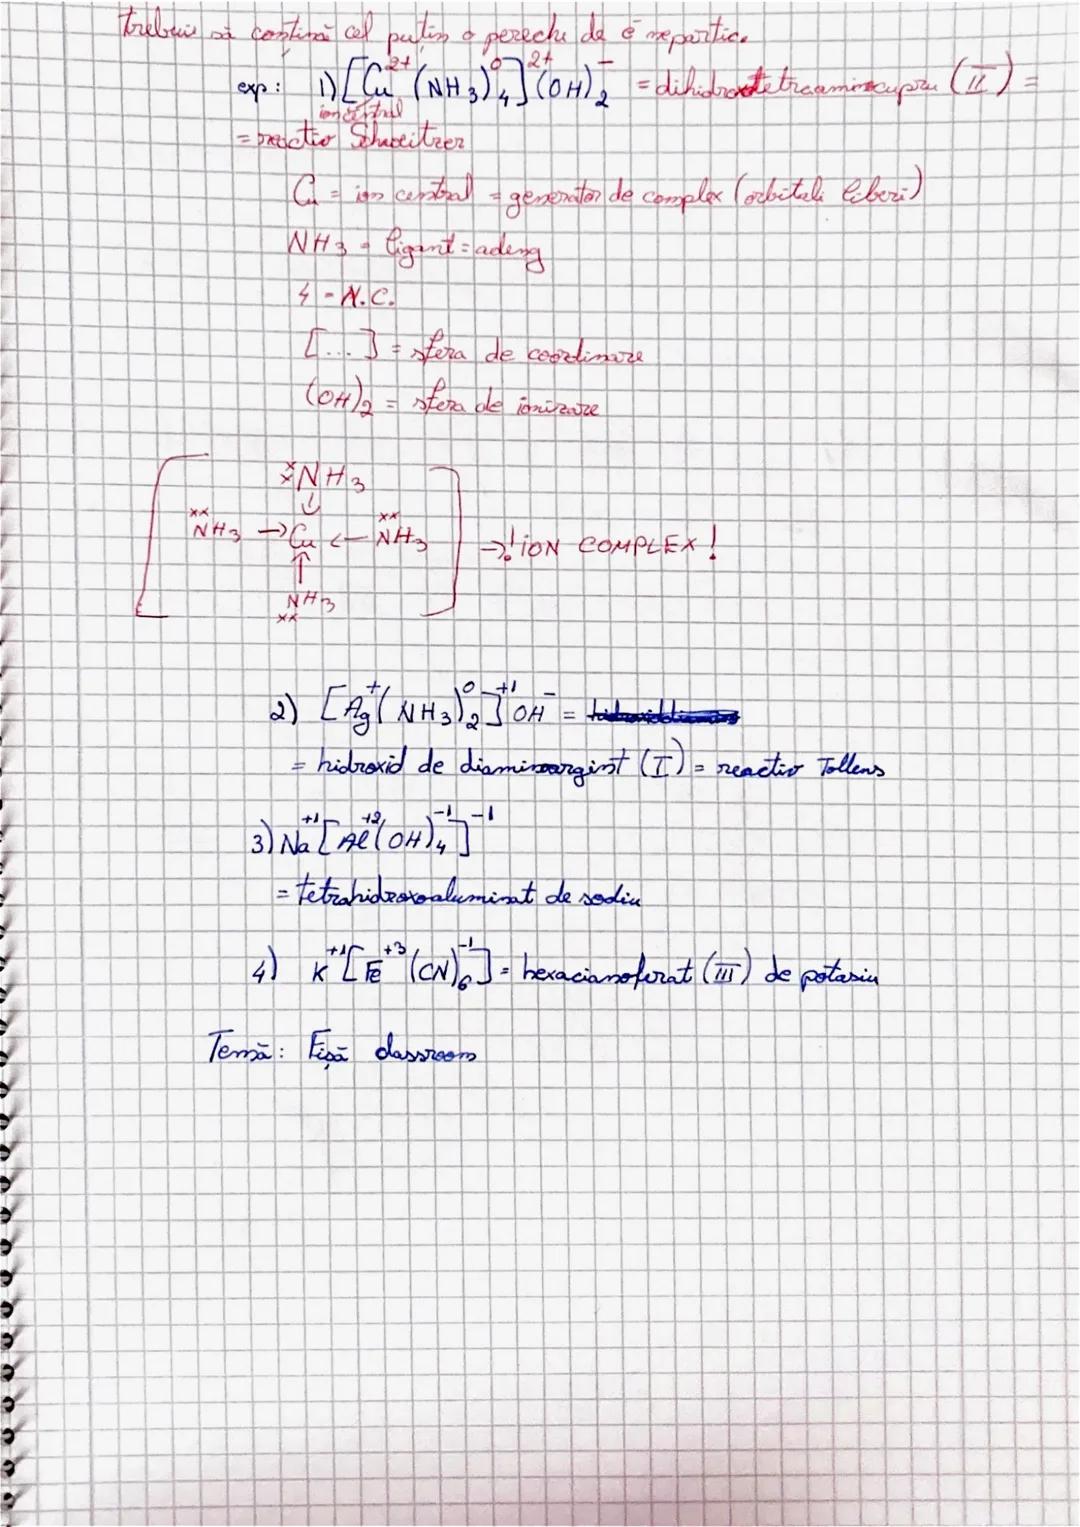 trebuie să conțină cel puțin o pereche de ē nepartic.
exp: 1) [Cu²⁺(NH3)⁰4]²⁺(OH)⁻2 = dihidroxotetraaminocupru (II) =
ion central
= reactiv Schweitzer
Cu = ion central = generator de complex (orbitali liberi)
NH3 - ligant = adeng
4 - N.C.
[...] = sfera de coordinare
(OH)2 = sfera de ionizare
NH3
NH3 → Cu ← NH3 →! ION COMPLEX!
NH3
2) [Ag⁺(NH3)⁰2]⁺¹OH⁻ =
= hidroxid de diaminoargint (I) = reactiv Tollens
3) Na⁺¹[Al⁺³(OH)⁻¹4]⁻¹
= tetrahidroxoaluminat de sodiu
4) K⁺¹[Fe⁺³(CN)⁻¹6] = hexacianoferat (III) de potasiu
Temă: Fișă classroom